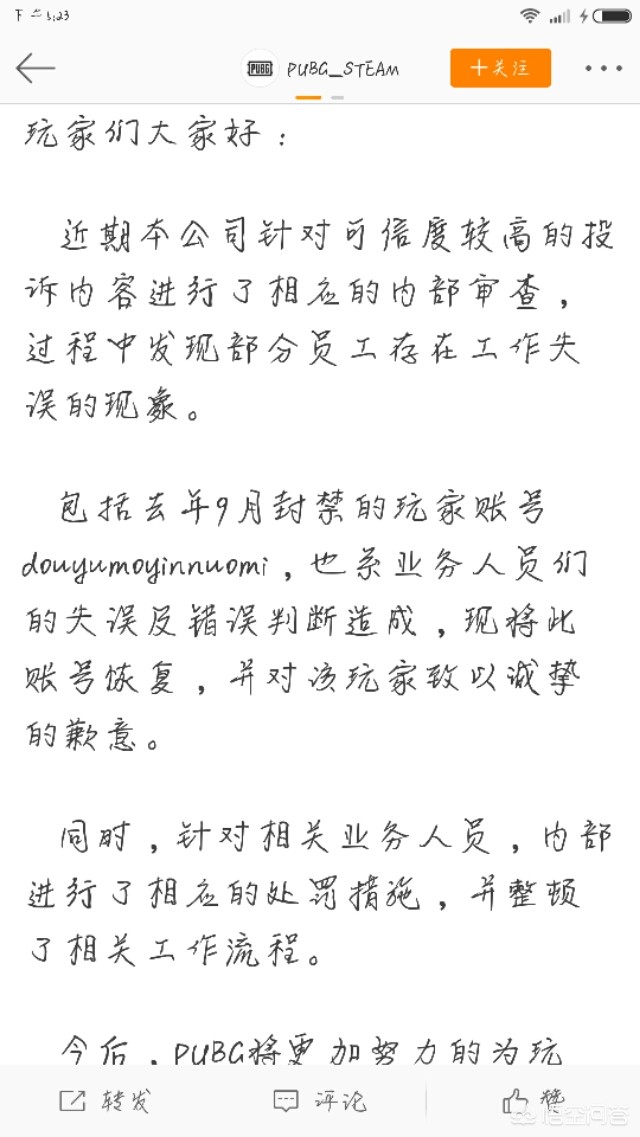 下午5:23
PUBG_STEAM
+关注
玩家们大家好：
近期本公司针对可信度较高的投
诉内容进行了相应的内部审查，
过程中发现部分员工存在工作失
误的现象。
包括去年9月封禁的玩家账号
douyumoyinnuomi，也系业务人员们
的失误及错误判断造成，现将此
账号恢复，并对该玩家致以诚挚
的歉意。
同时，针对相关业务人员，内部
进行了相应的处罚措施，并整顿
了相关工作流程。
今后，PUBG将更加努力的为玩
转发
评论
赞
悟空问答